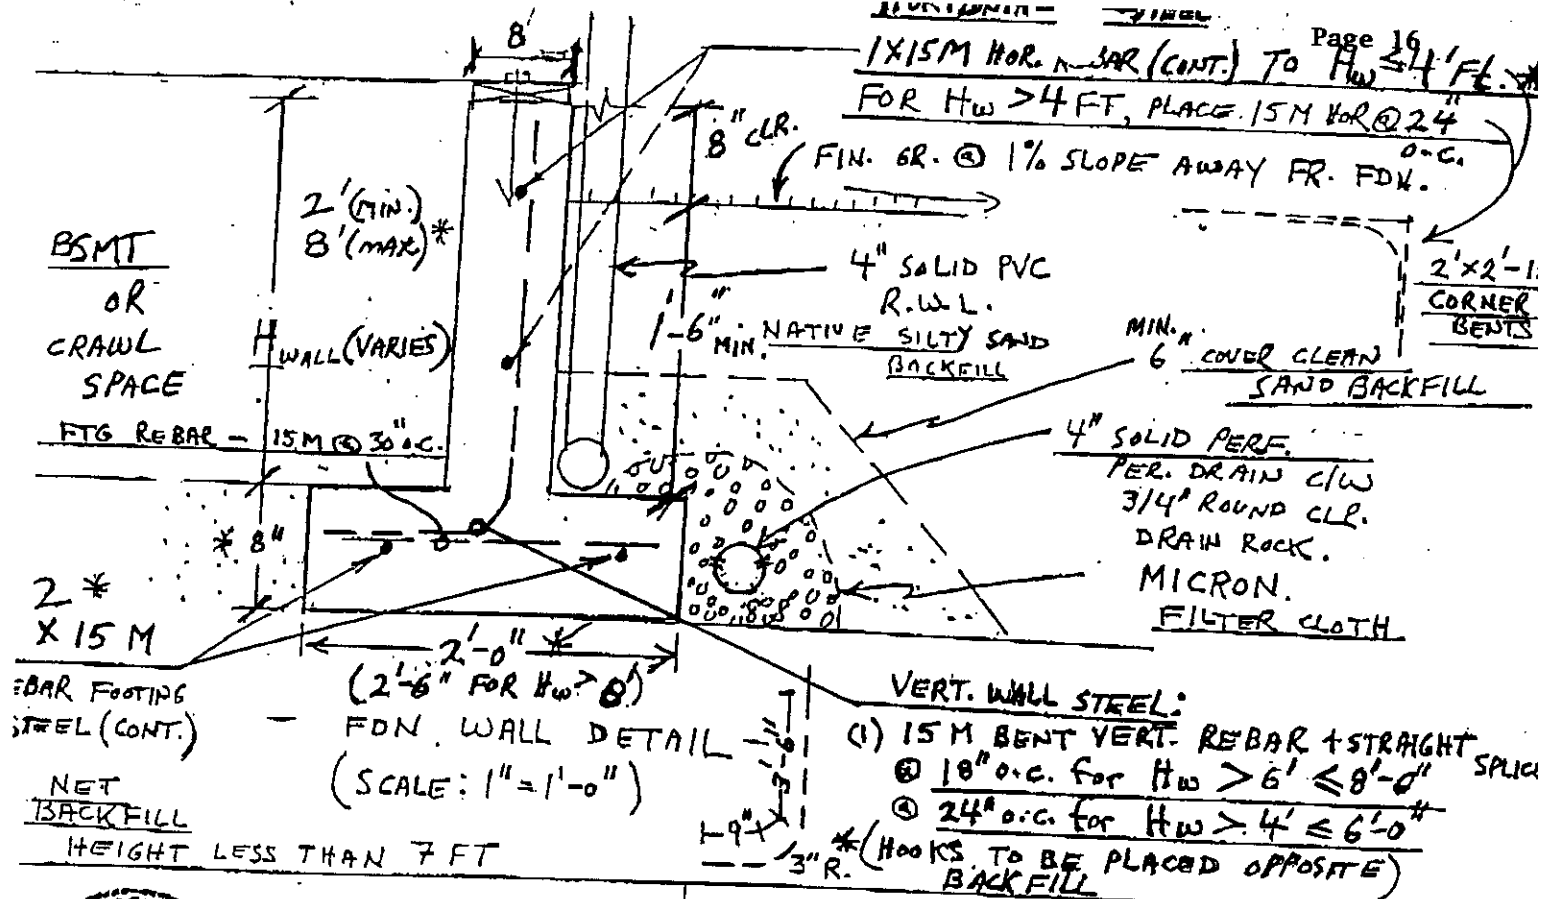 Page 16
8'
1X15M HOR. BAR (CONT.) TO Hw ≤ 4' Ft. *
FOR Hw > 4 FT, PLACE 15 M HOR @ 24"
O.C.
8" CLR.
FIN. GR. @ 1% SLOPE AWAY FR. FDN.
2' (MIN.)
8' (MAX) *
BSMT
OR
CRAWL
SPACE
H WALL (VARIES)
4" SOLID PVC
R.W.L.
1'-6" MIN.
NATIVE SILTY SAND
BACKFILL
2'x2'-1
CORNER
BENTS
MIN.
6" COVER CLEAN
SAND BACKFILL
FTG REBAR - 15M @ 30" o.c.
4" SOLID PERF.
PER. DRAIN C/W
3/4" ROUND CLR.
DRAIN ROCK.
MICRON.
FILTER CLOTH
* 8"
2 *
X 15 M
EBAR FOOTING
STEEL (CONT.)
2'-0" *
(2'-6" FOR Hw > 8')
- FDN. WALL DETAIL -
(SCALE: 1" = 1'-0")
NET
BACKFILL
HEIGHT LESS THAN 7 FT
3'-6"
9"
3" R.
VERT. WALL STEEL:
(1) 15 M BENT VERT. REBAR + STRAIGHT SPLICE
@ 18" o.c. for Hw > 6' ≤ 8'-0"
@ 24" o.c. for Hw > 4' ≤ 6'-0"
*(HOOKS TO BE PLACED OPPOSITE)
BACKFILL